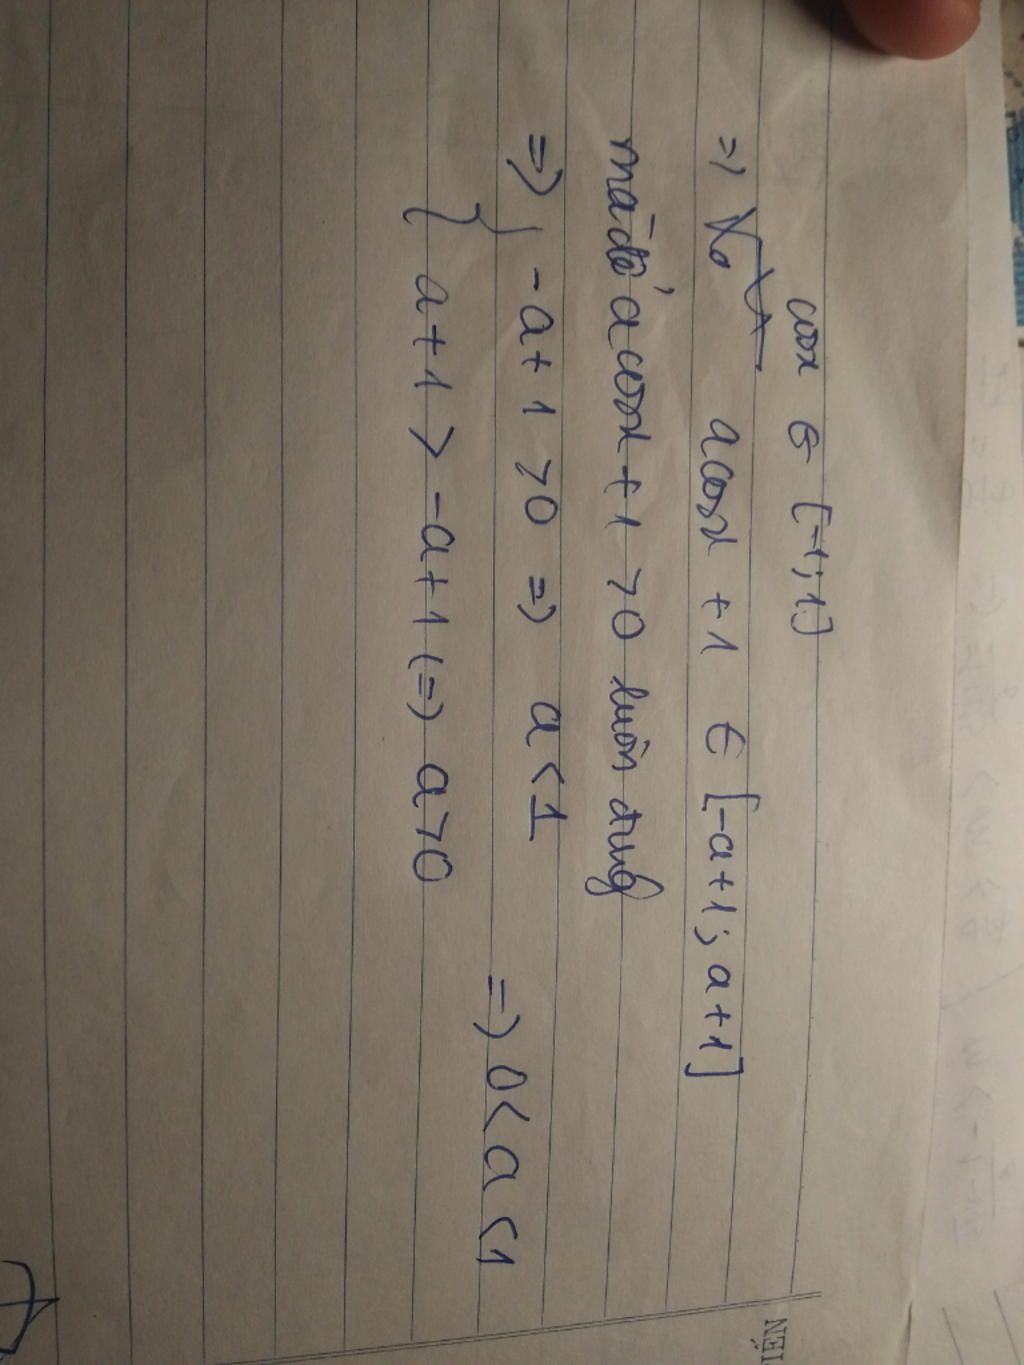 cosx ∈ [-1; 1]
=> acosx + 1 ∈ [-a+1; a+1]
mà để acosx + 1 > 0 luôn đúng
=> { -a + 1 > 0 => a < 1
{ a + 1 > -a + 1 (=) a > 0
=> 0 < a < 1
IÊN